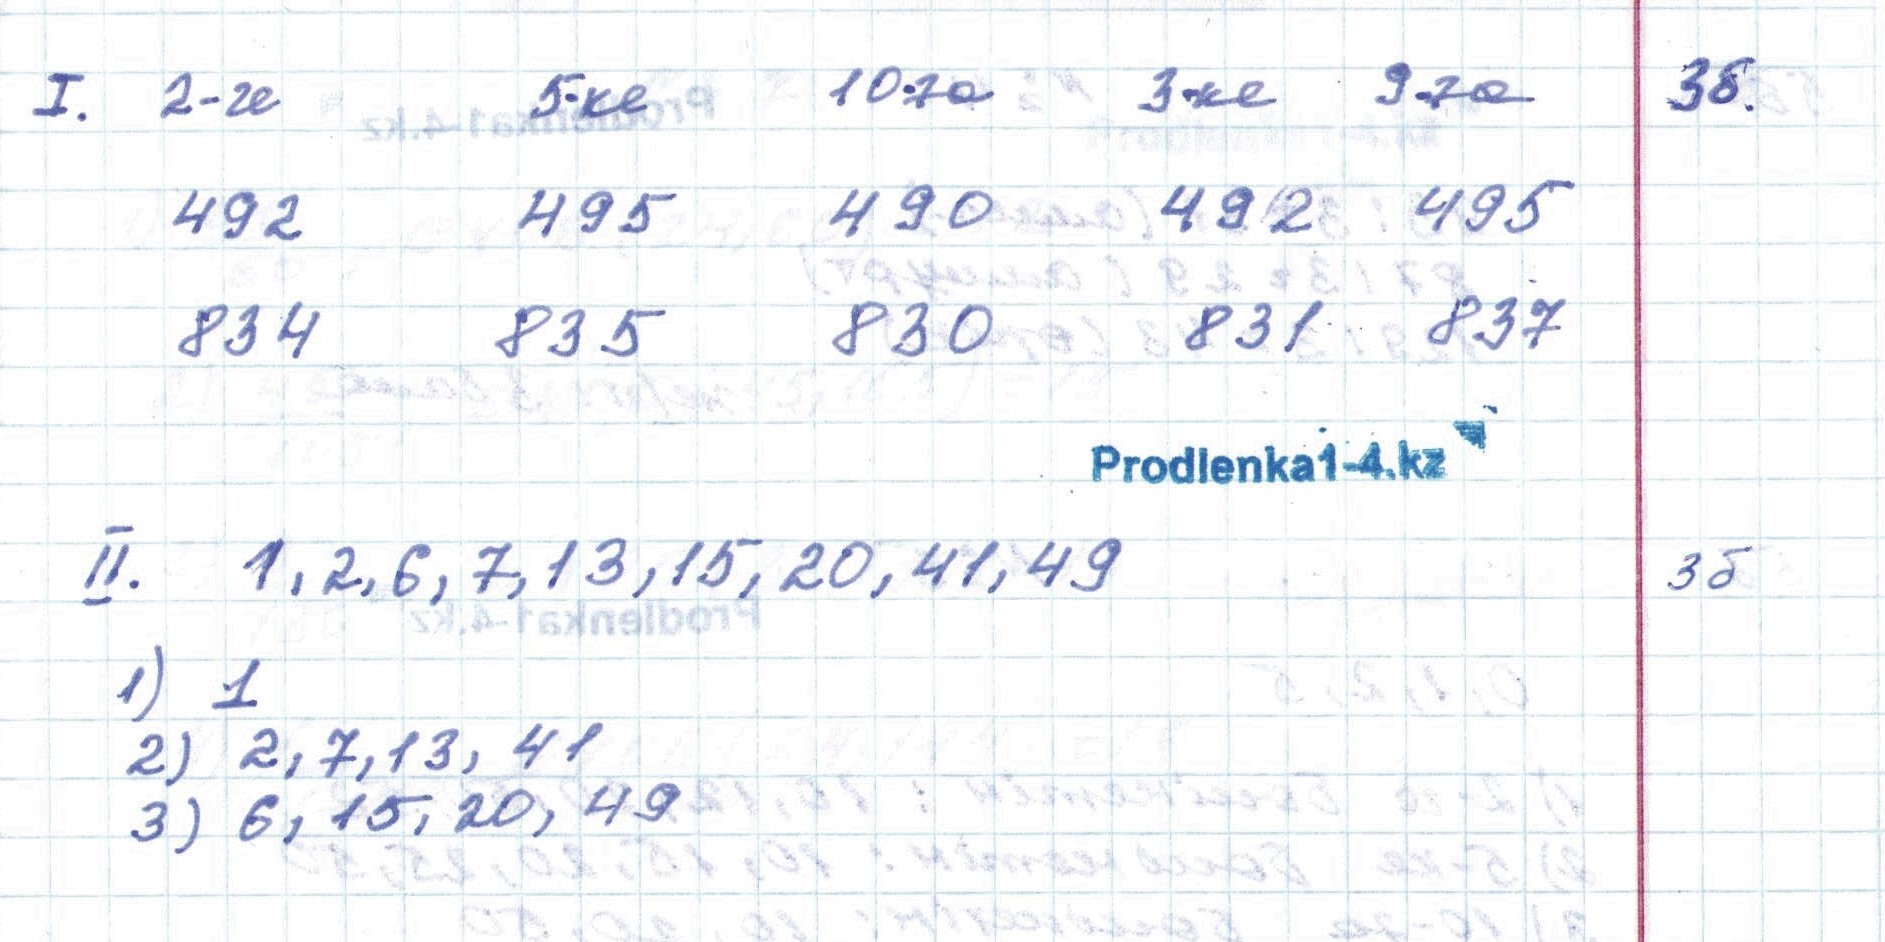 I. 2-ге 5-ке 10-ға 3-ке 9-ға 3б.
492 495 490 492 495
834 835 830 831 837
Prodlenka1-4.kz
II. 1, 2, 6, 7, 13, 15, 20, 41, 49 3б
1) 1
2) 2, 7, 13, 41
3) 6, 15, 20, 49